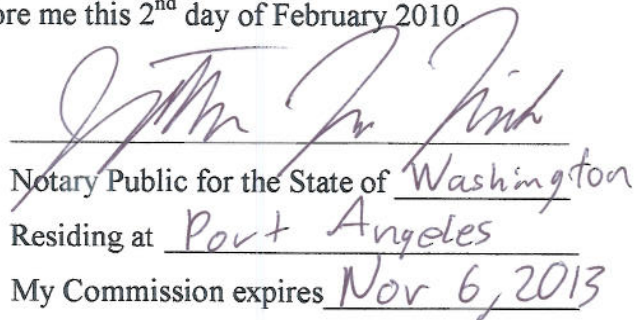 ore me this 2nd day of February 2010
Notary Public for the State of Washington
Residing at Port Angeles
My Commission expires Nov 6, 2013